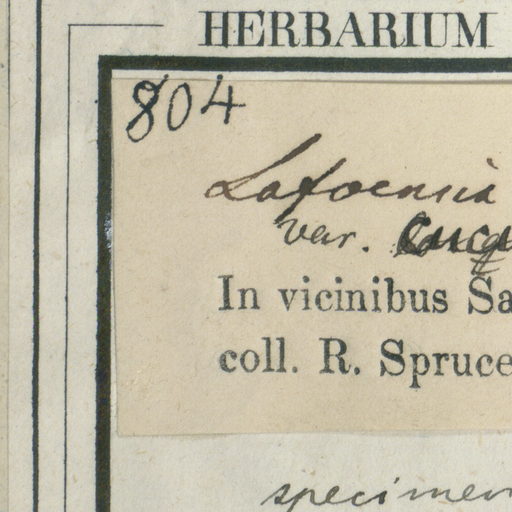 HERBARIUM
804
Lafoensia
var.
In vicinibus Sa
coll. R. Spruce
specimen